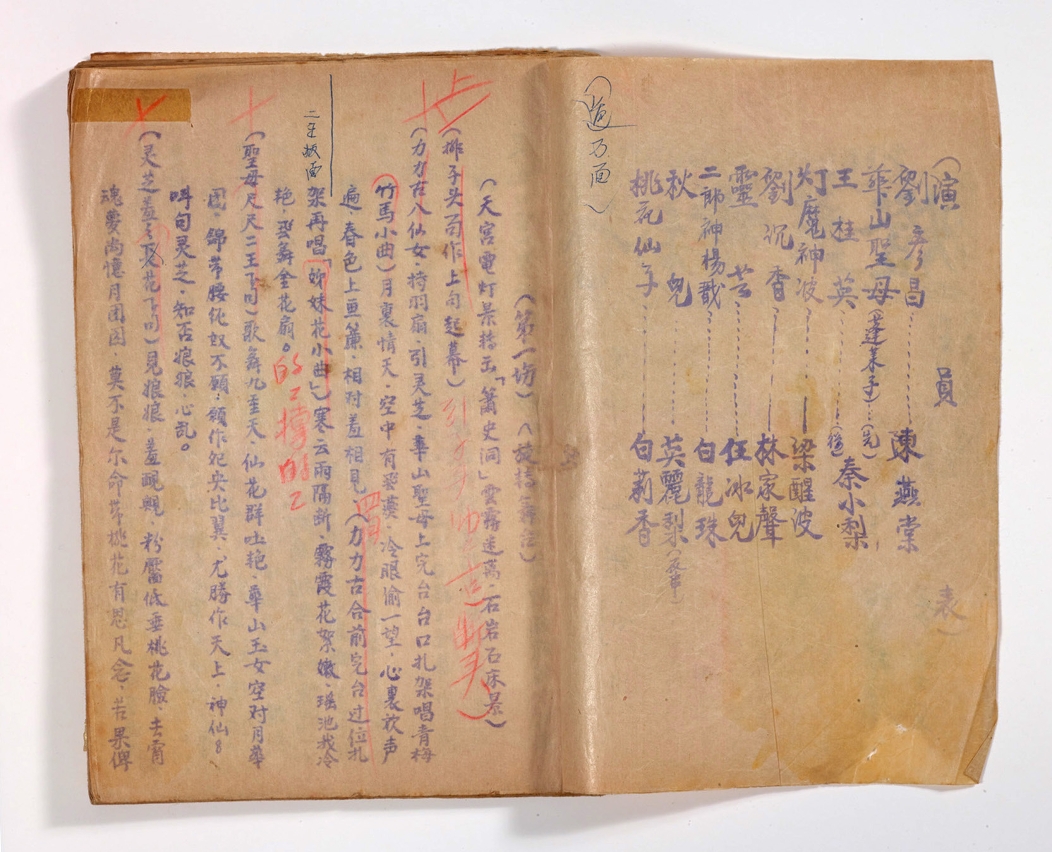 (演員表)
劉彥昌 陳燕棠
華山聖母(蓬萊子)(先)
王桂英(後) 秦小梨
灯魔神波 梁醒波
劉沉香 林家聲
靈芝 任冰兒
二郎神楊戩 白龍珠
秋兒 英麗梨
桃花仙子 白莉香
过万面
(第一場)
(天宮電灯景轉玉「簫史洞」雲霧迷离·石岩石床景)
(排子头百作上句起幕)
(力力在八仙女·持羽扇·引灵芝·華山聖母上完台台口扎架唱青梅
竹馬小曲)月裏情天·空中有飛燕·冷眼偷一望·心裏欢声
遍·春色上画簾·相对羞相見(力力古合前完台过位扎
架再唱「姊妹花小曲」)寒云雨隔断·霧霞花絮嫩·瑶池我冷
艳·飛舞金花扇。的工撐的工
二王板面
(聖母尺尺二王下句)歌舞九重天·仙花群吐艳·華山玉女空对月華
圆·錦帶腰纯奴不願·願作鸳央比翼·尤勝作天上·神仙
叫句灵芝·知否娘娘·心乱。
(灵芝羞之反花下句)見娘娘·羞靦覥·粉靨低垂桃花臉·去宵
魂夢尚憶月团圆·莫不是尔命带桃花有思凡念·若果俾